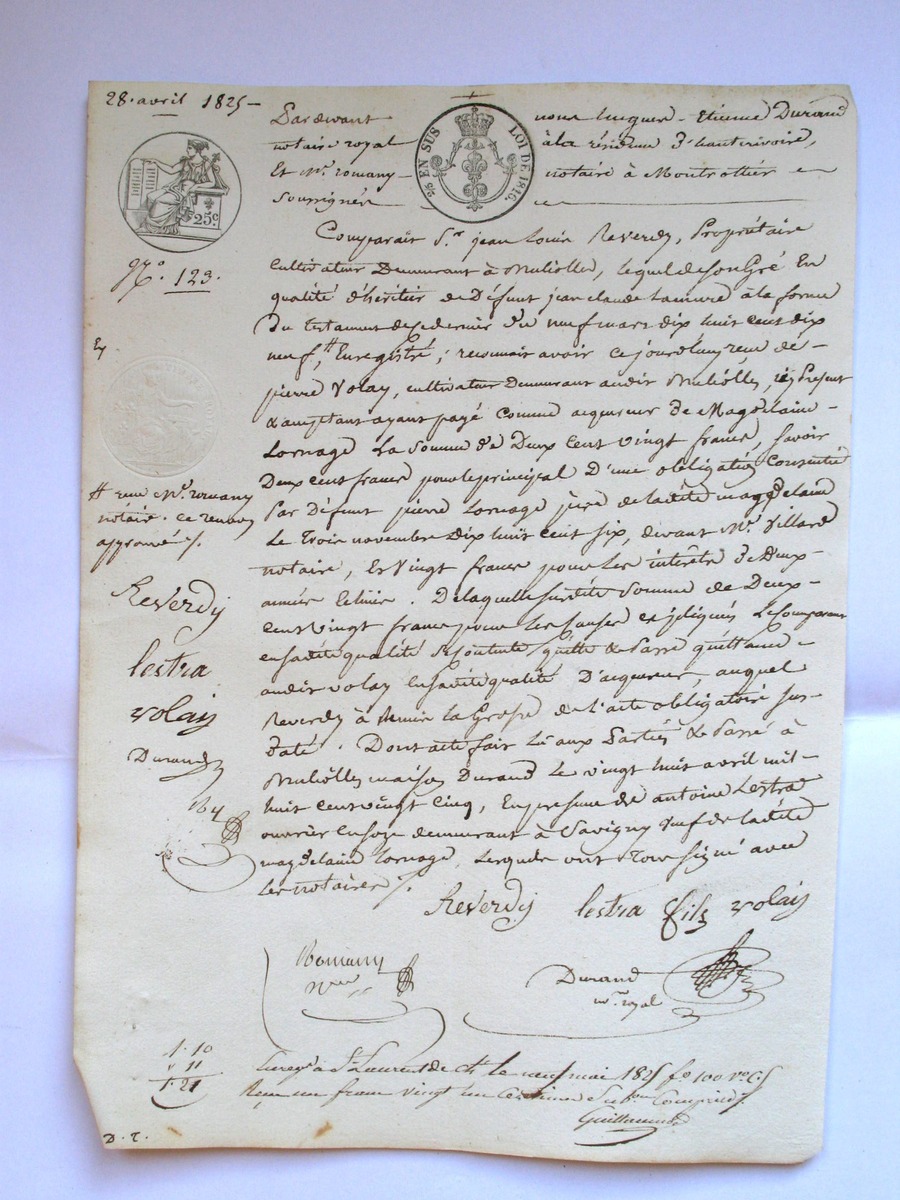 28. avril 1825 -
Pardevant nous hugues - Etienne Durand
notaire royal à la résidence d'hauterivoire,
Et Me. romany - notaire à Montrottier
Soussignés
2/6 EN SUS LOI DE 1816.
25c
No. 123.
Comparait Sr. jean Louis Reverdy, Propriétaire
cultivateur Demeurant à Muliolles, lequel de Son Gré En
qualité d'héritier de Défunt jean claude Lamure à la forme
du testament de ce dernier du neuf mars dix huit cent dix
neuf, # Enregistré; reconnait avoir ce jourd'huy reçu de -
pierre Volay, cultivateur Demeurant audit Muliolles, icy Present
& acceptant ayant payé comme acquereur de Magdelaine -
Lornage La Somme de Deux cent vingt francs, Savoir
Deux cent francs pour le principal D'une obligation Consentie
Par Défunt pierre Lornage père de ladite magdelaine
Le Trois novembre Dix huit cent six, devant Me. Villard
notaire, Et vingt francs pour les intérêts de Deux -
années Echues. De laquelle susdite Somme de Deux -
cent vingt francs pour les causes expliquées Le Comparant
en sadite qualité Se contente quitte & Passe quittance -
audit volay en sadite qualité D'acquereur, auquel
Reverdy à Remis la Grosse de l'acte obligatoire sus -
daté. Dont acte fait lu aux Parties & Passé à
Muliolles maison Durand Le vingt huit avril mil -
huit cent vingt cinq, En presence de antoine Lestra
ouvrier en soye demeurant à Savigny veuf de ladite
magdelaine Lornage, Lesquels ont Tous signé avec
Les notaires %.
Ey
# reçu Me. romany
notaire. ce renvoy
approuvé %.
Reverdy
lestra
volay
Durand
Reverdy lestra fils volay
Romany
nre
Durand
nre. royal
1. 10
v 11
1. 21
Enregé à St. Laurent de Ch. le neuf mai 1825 fo 100 vo C. 5
Reçu un franc vingt un centimes subon. Comprise.
Guillermin
D. T.